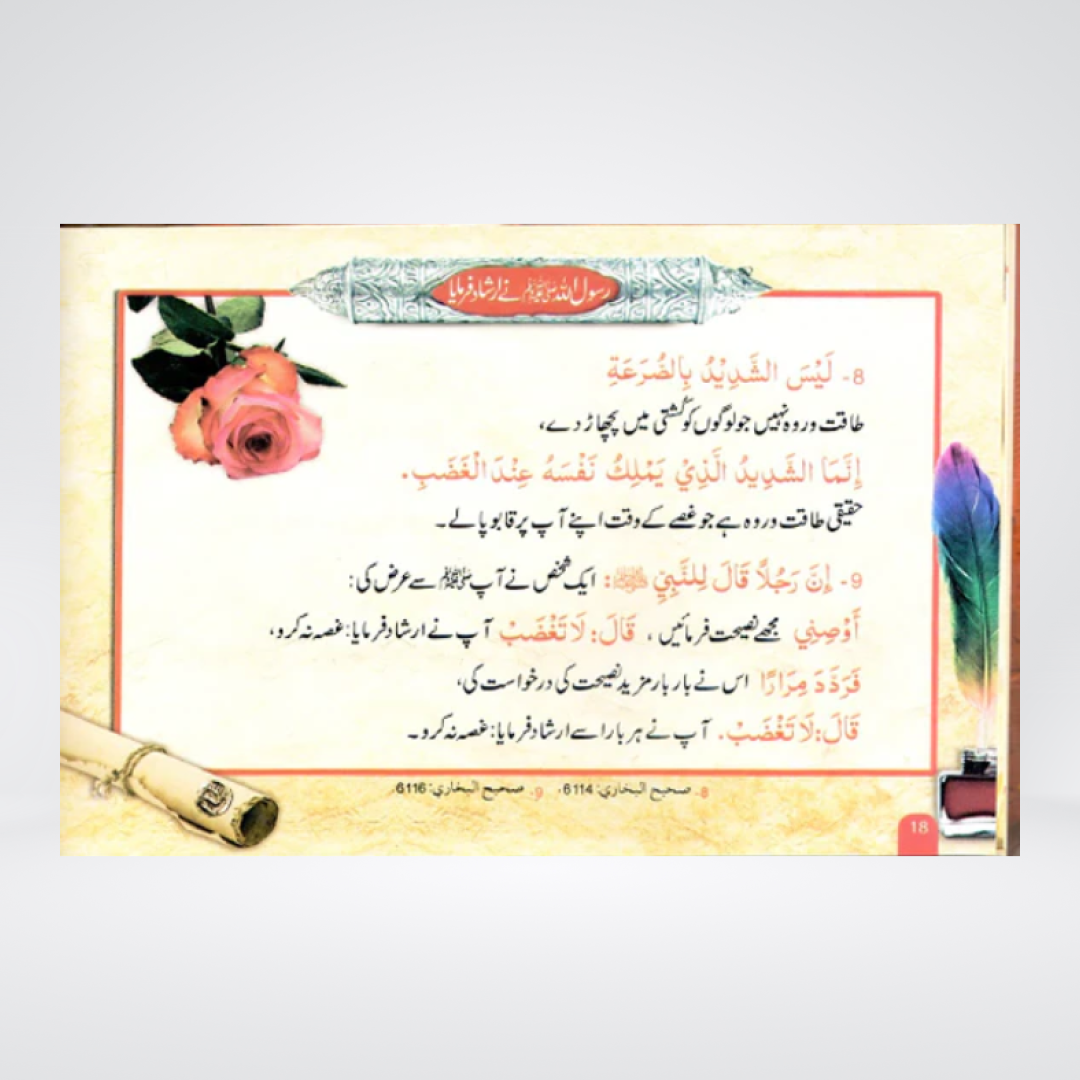 رسول اللہ ﷺ نے ارشاد فرمایا
8- لَيْسَ الشَّدِيْدُ بِالصُّرَعَةِ
طاقت ور وہ نہیں جو لوگوں کو کُشتی میں پچھاڑ دے،
إِنَّمَا الشَّدِيدُ الَّذِيْ يَمْلِكُ نَفْسَهُ عِنْدَ الْغَضَبِ.
حقیقی طاقت ور وہ ہے جو غصے کے وقت اپنے آپ پر قابو پا لے۔
9- إِنَّ رَجُلًا قَالَ لِلنَّبِيِّ ﷺ: ایک شخص نے آپ ﷺ سے عرض کی:
أَوْصِنِي مجھے نصیحت فرمائیں، قَالَ: لَا تَغْضَبْ آپ نے ارشاد فرمایا: غصہ نہ کرو،
فَرَدَّدَ مِرَارًا اس نے بار بار مزید نصیحت کی درخواست کی،
قَالَ: لَا تَغْضَبْ. آپ نے ہر بار اسے ارشاد فرمایا: غصہ نہ کرو۔
8- صحيح البخاري: 6114، 9- صحيح البخاري: 6116.
18